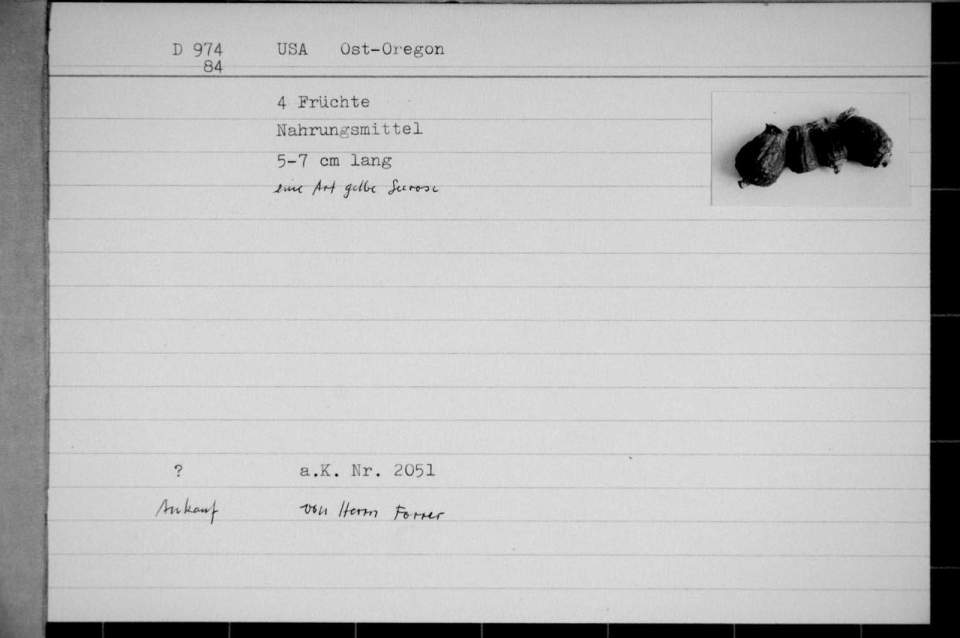 D 974 USA Ost-Oregon
84
4 Früchte
Nahrungsmittel
5-7 cm lang
eine Art gelbe Seerose
? a.K. Nr. 2051
Ankauf von Herrn Forrer